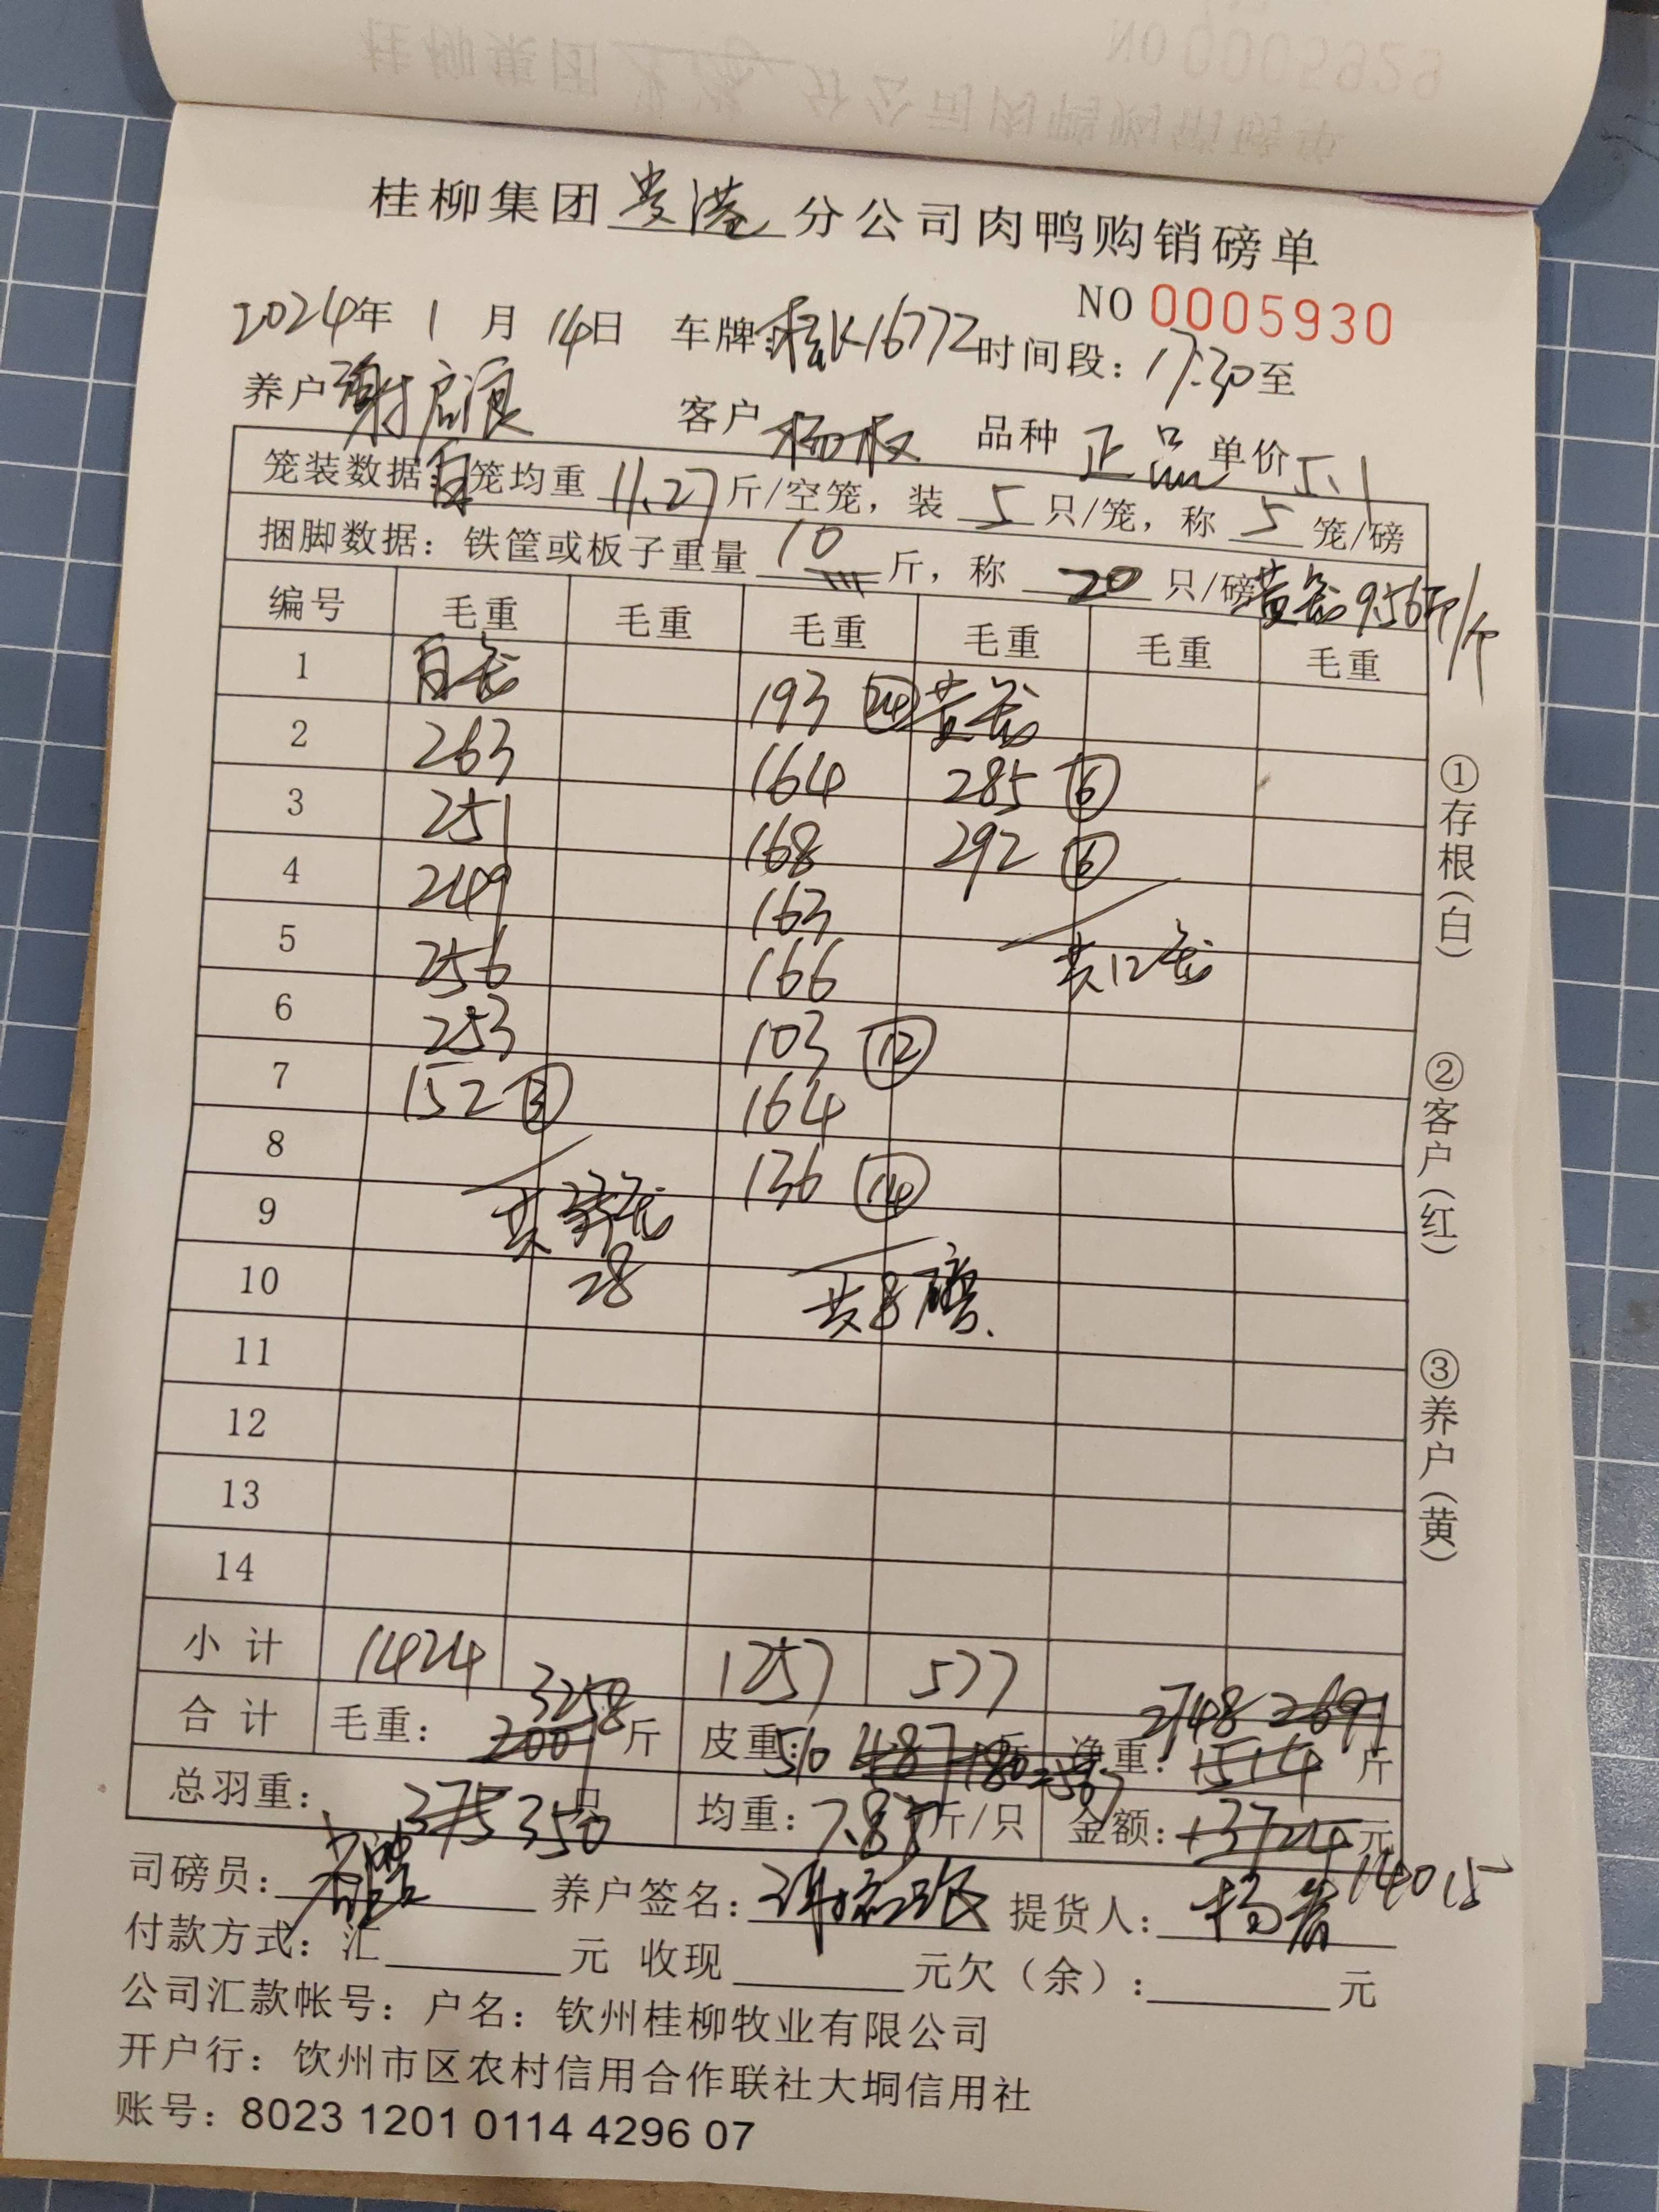 桂柳集团贵港分公司肉鸭购销磅单
NO 0005930
2024年 1 月 14日 车牌:桂K16772 时间段：17:30至
养户 谢启浪 客户 杨权 品种 正品 单价 5.1
笼装数据：白笼均重 11.27 斤/空笼，装 5 只/笼，称 5 笼/磅
捆脚数据：铁筐或板子重量 10 斤，称 20 只/磅 黄笼9.56斤/个
编号 毛重 毛重 毛重 毛重 毛重 毛重
1 白笼 193 24 黄笼
2 263 164 285 6
3 251 168 292 6
4 249 163
5 256 166 共12笼
6 253 103 12
7 152 3 164
8 136 14
9 共 笼
10 28 共8磅
11
12
13
14
小计 1424 1257 577
合计 毛重： 3258 斤 皮重： 510 净重： 2748 2691 1514 斤
总羽重： 375 350 只 均重：7.85 斤/只 金额： 13724 元 14015
司磅员： 养户签名： 提货人：
付款方式：汇 元 收现 元欠（余）： 元
公司汇款帐号：户名：钦州桂柳牧业有限公司
开户行：饮州市区农村信用合作联社大垌信用社
账号：8023 1201 0114 4296 07
①存根（白）
②客户（红）
③养户（黄）